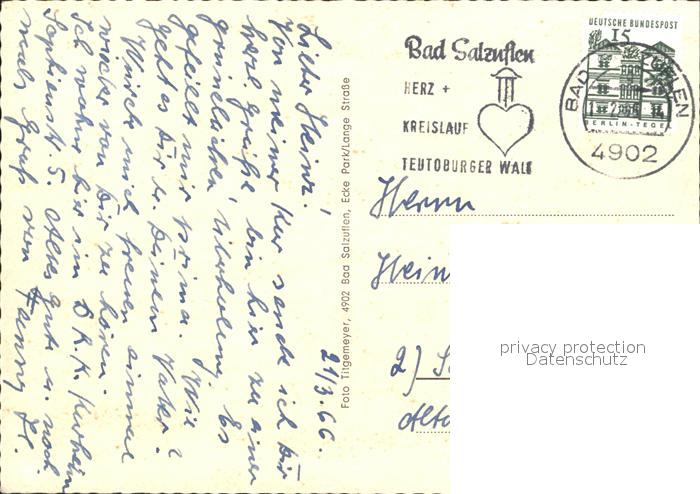 21/3.66.
Lieber Heinz!
Von meiner Kur sende ich Dir
herzl. Grüße! bin hier zu einer
gründlichen Überholung. Es
gefällt mir prima. Wie
geht es Dir u. Deinem Vater?
Würde mich freuen einmal
wieder von Dir zu hören.
Ich wohne hier im D.R.K. Kurheim
Sophienstr. 5. Alles Gute u. noch
mals Gruß von Fanny H.
Foto Titgemeyer, 4902 Bad Salzuflen, Ecke Park/Lange Straße
Bad Salzuflen
HERZ +
KREISLAUF
TEUTOBURGER WALD
DEUTSCHE BUNDESPOST
15
BERLIN-TEGEL
BAD UFLEN
4902
Herrn
Hein
2)
Alto
privacy protection
Datenschutz